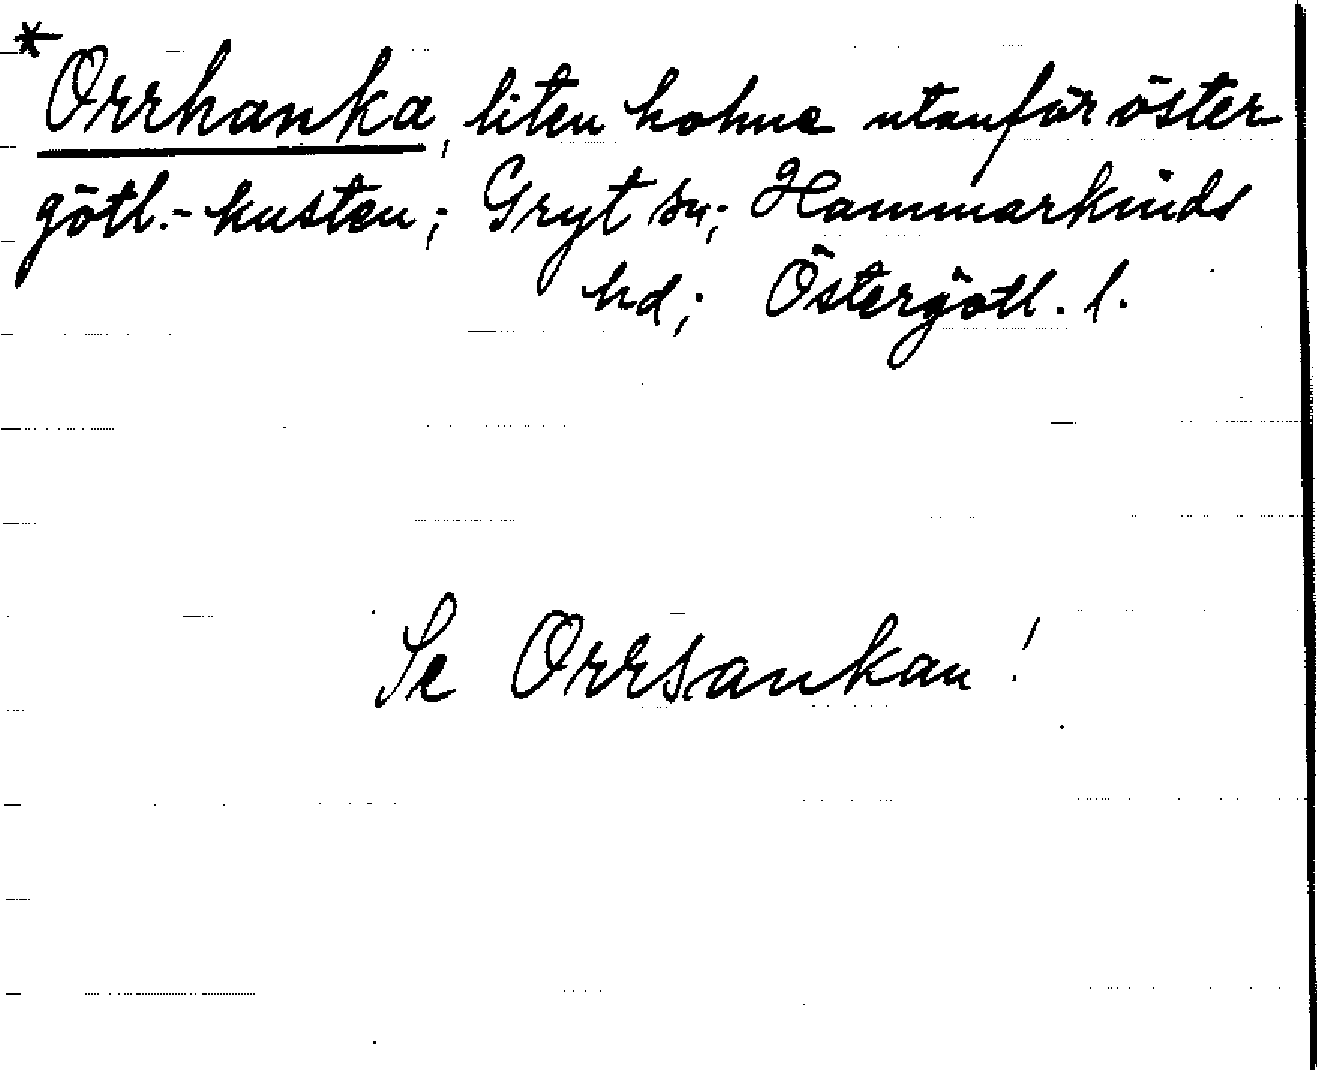 *Orrhanka, liten holme utanför öster
götl.-kusten; Gryt sn; Hammarkinds
hd; Östergötl. l.
Se Orrsankan!